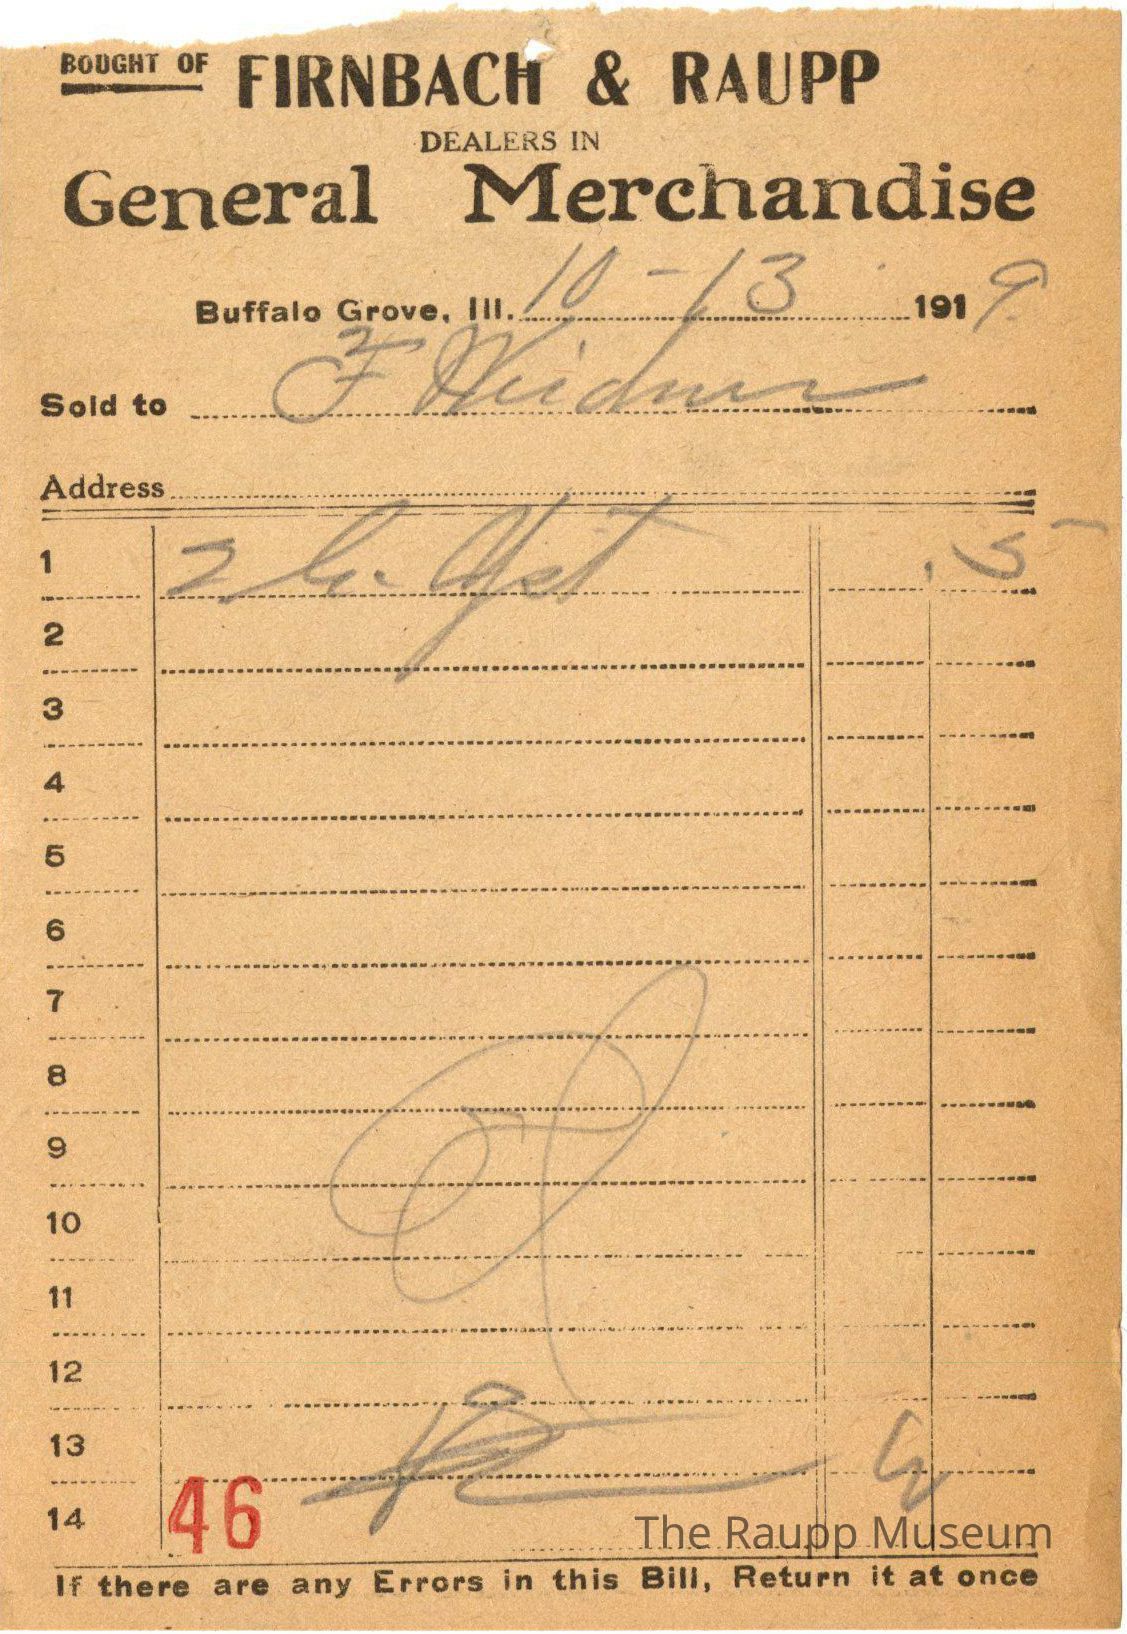 BOUGHT OF FIRNBACH & RAUPP
DEALERS IN
General Merchandise
Buffalo Grove, Ill. 10-13 1919.
Sold to F Weidner
Address
1 2 .5
2
3
4
5
6
7
8
9
10
11
12
13
14 46
The Raupp Museum
If there are any Errors in this Bill, Return it at once